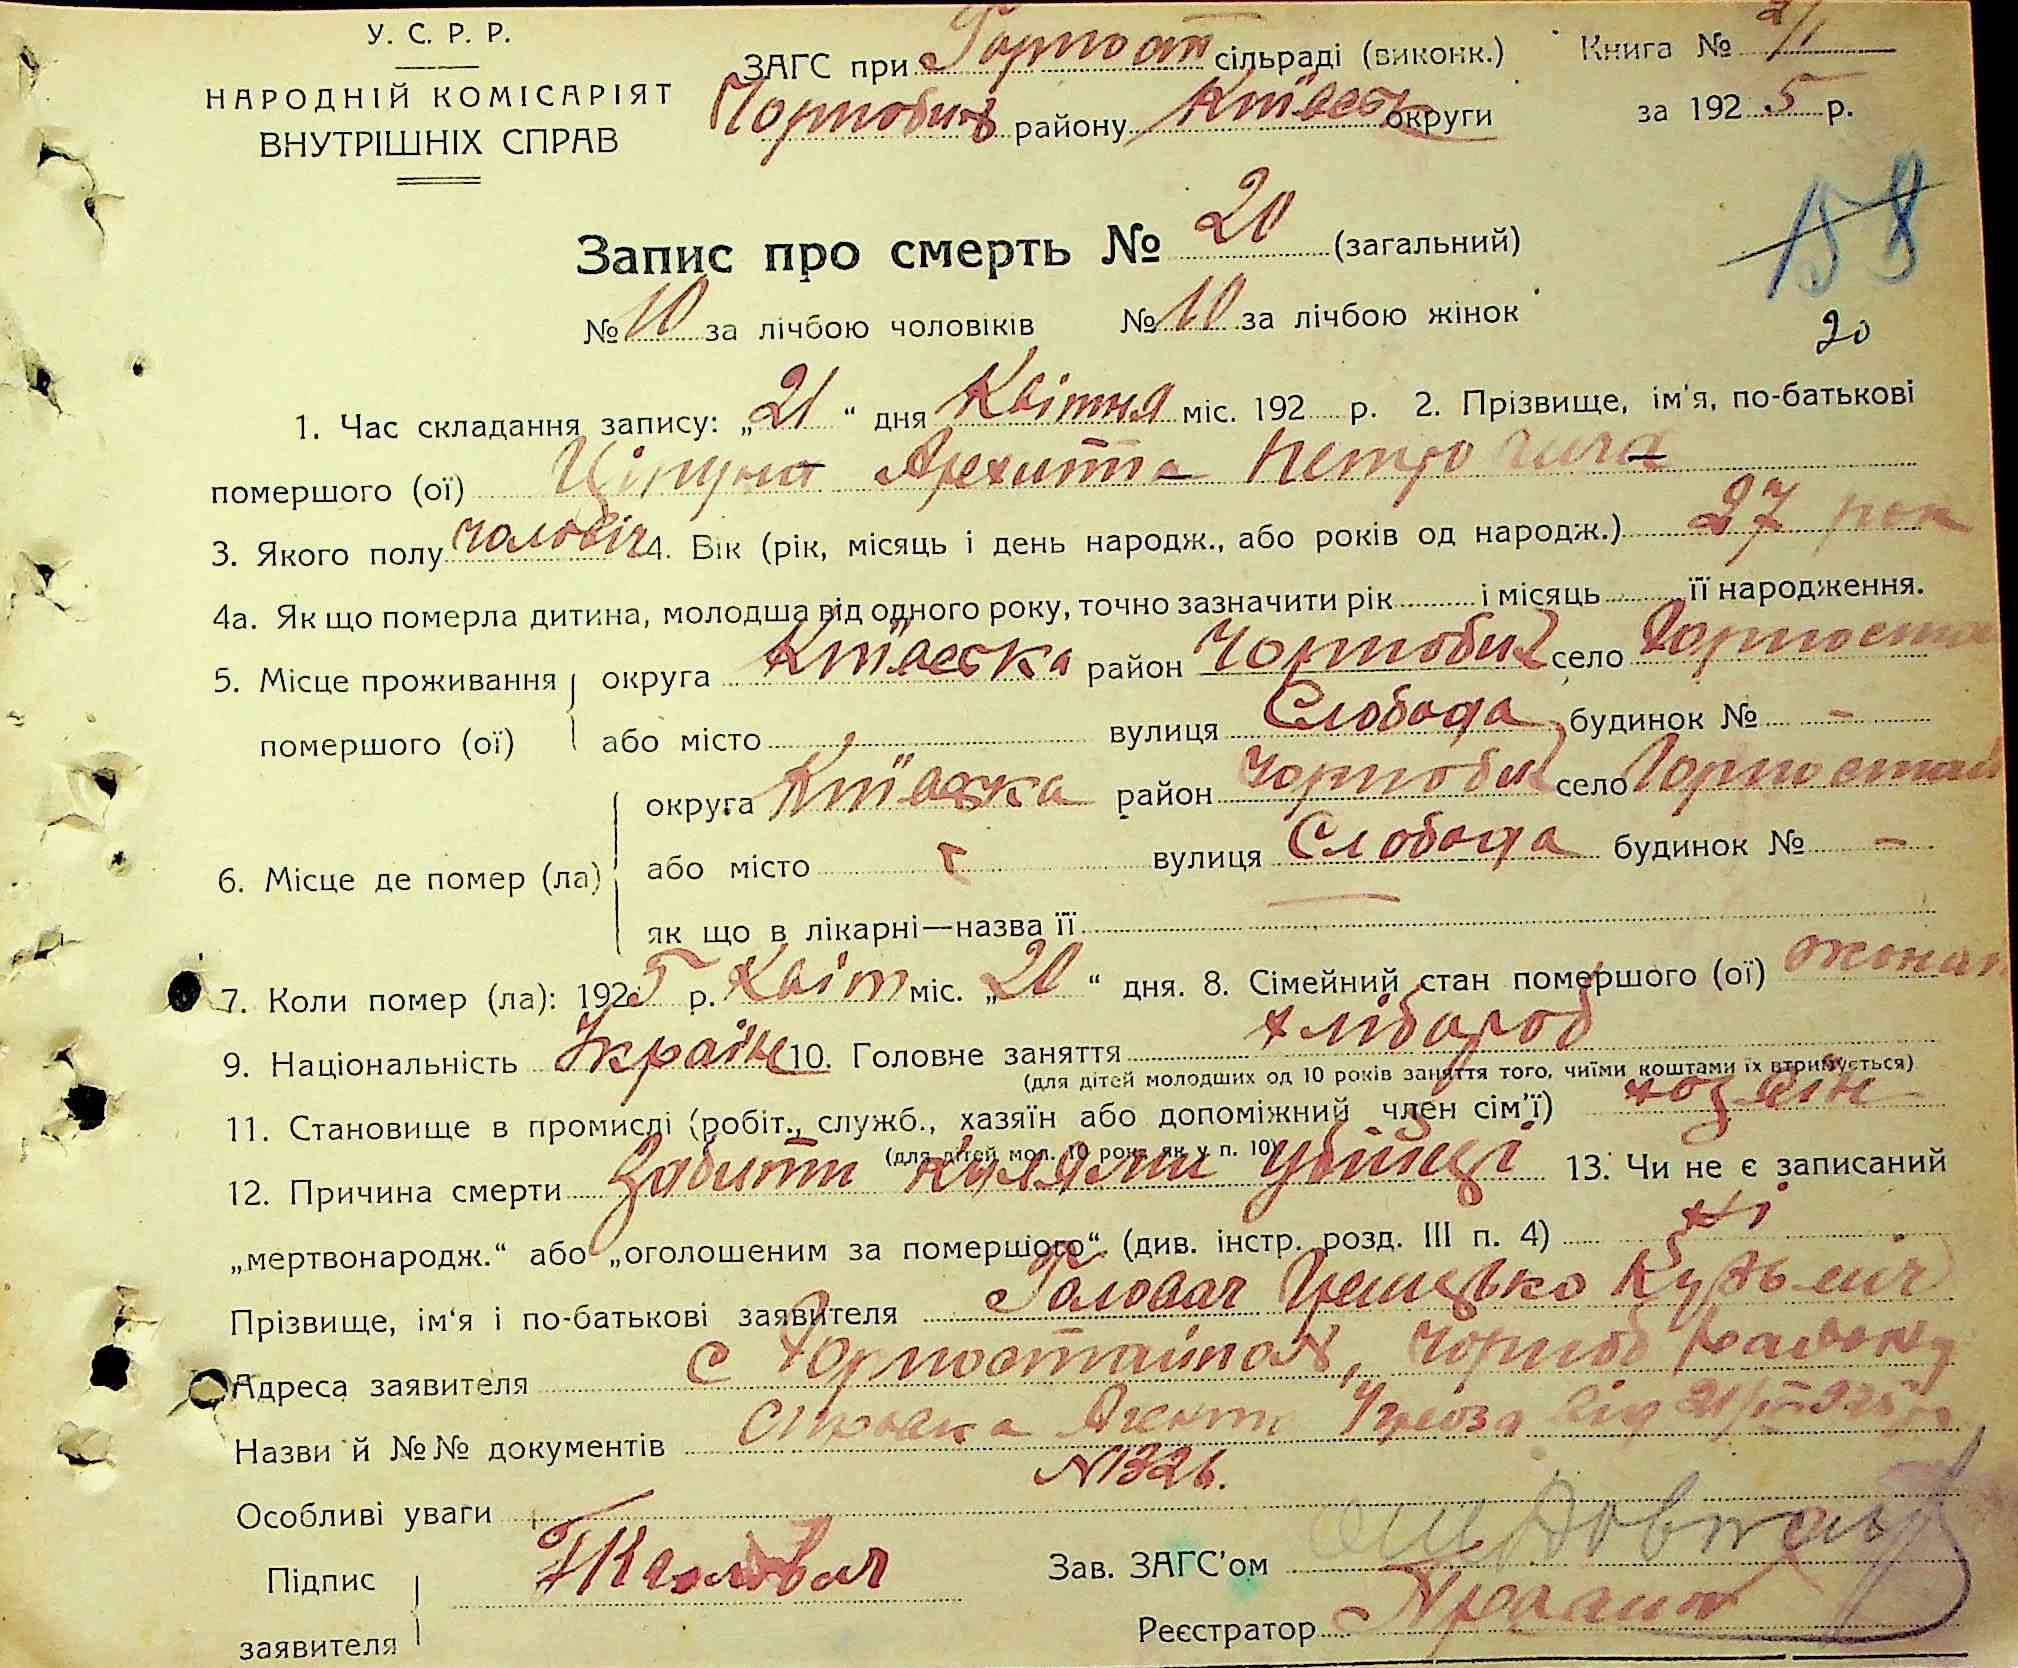 У. С. Р. Р.
НАРОДНІЙ КОМІСАРІЯТ
ВНУТРІШНІХ СПРАВ
ЗАГС при Горност сільраді (виконк.)
Чорнобил району Київськ округи
Книга № 2/1
за 1925 р.
158
Запис про смерть № 20 (загальний)
№ 10 за лічбою чоловіків № 10 за лічбою жінок
20
1. Час складання запису: „21“ дня Квітня міс. 192 р. 2. Прізвище, ім'я, по-батькові
помершого (ої) Архипа Петровича
3. Якого полу чоловіч 4. Вік (рік, місяць і день народж., або років од народж.) 27 рок
4а. Як що померла дитина, молодша від одного року, точно зазначити рік і місяць її народження.
5. Місце проживання помершого (ої) округа Київська район Чорнобил село Горностай
або місто вулиця Слобода будинок № -
6. Місце де помер (ла) округа Київська район Чорнобил село Горностай
або місто вулиця Слобода будинок № -
як що в лікарні—назва її
7. Коли помер (ла): 1925 р. Квітн міс. „20“ дня. 8. Сімейний стан помершого (ої) жонат
9. Національність Україн 10. Головне заняття хлібороб
(для дітей молодших од 10 років заняття того, чиїми коштами їх втримується)
11. Становище в промислі (робіт., служб., хазяїн або допоміжний член сім'ї) хозяїн
(для дітей мол. 10 років як у п. 10)
12. Причина смерти Забити 13. Чи не є записаний
„мертвонародж.“ або „оголошеним за помершого“. (див. інстр. розд. III п. 4) Ні
Прізвище, ім‘я і по-батькові заявителя Головач Грицько Кузьміч
Адреса заявителя с Горностайпол, Чорноб району
Назви й №№ документів від 21/IV 925 р
№ 1326.
Особливі уваги
Підпис заявителя ГКГоловач
Зав. ЗАГС'ом
Реєстратор